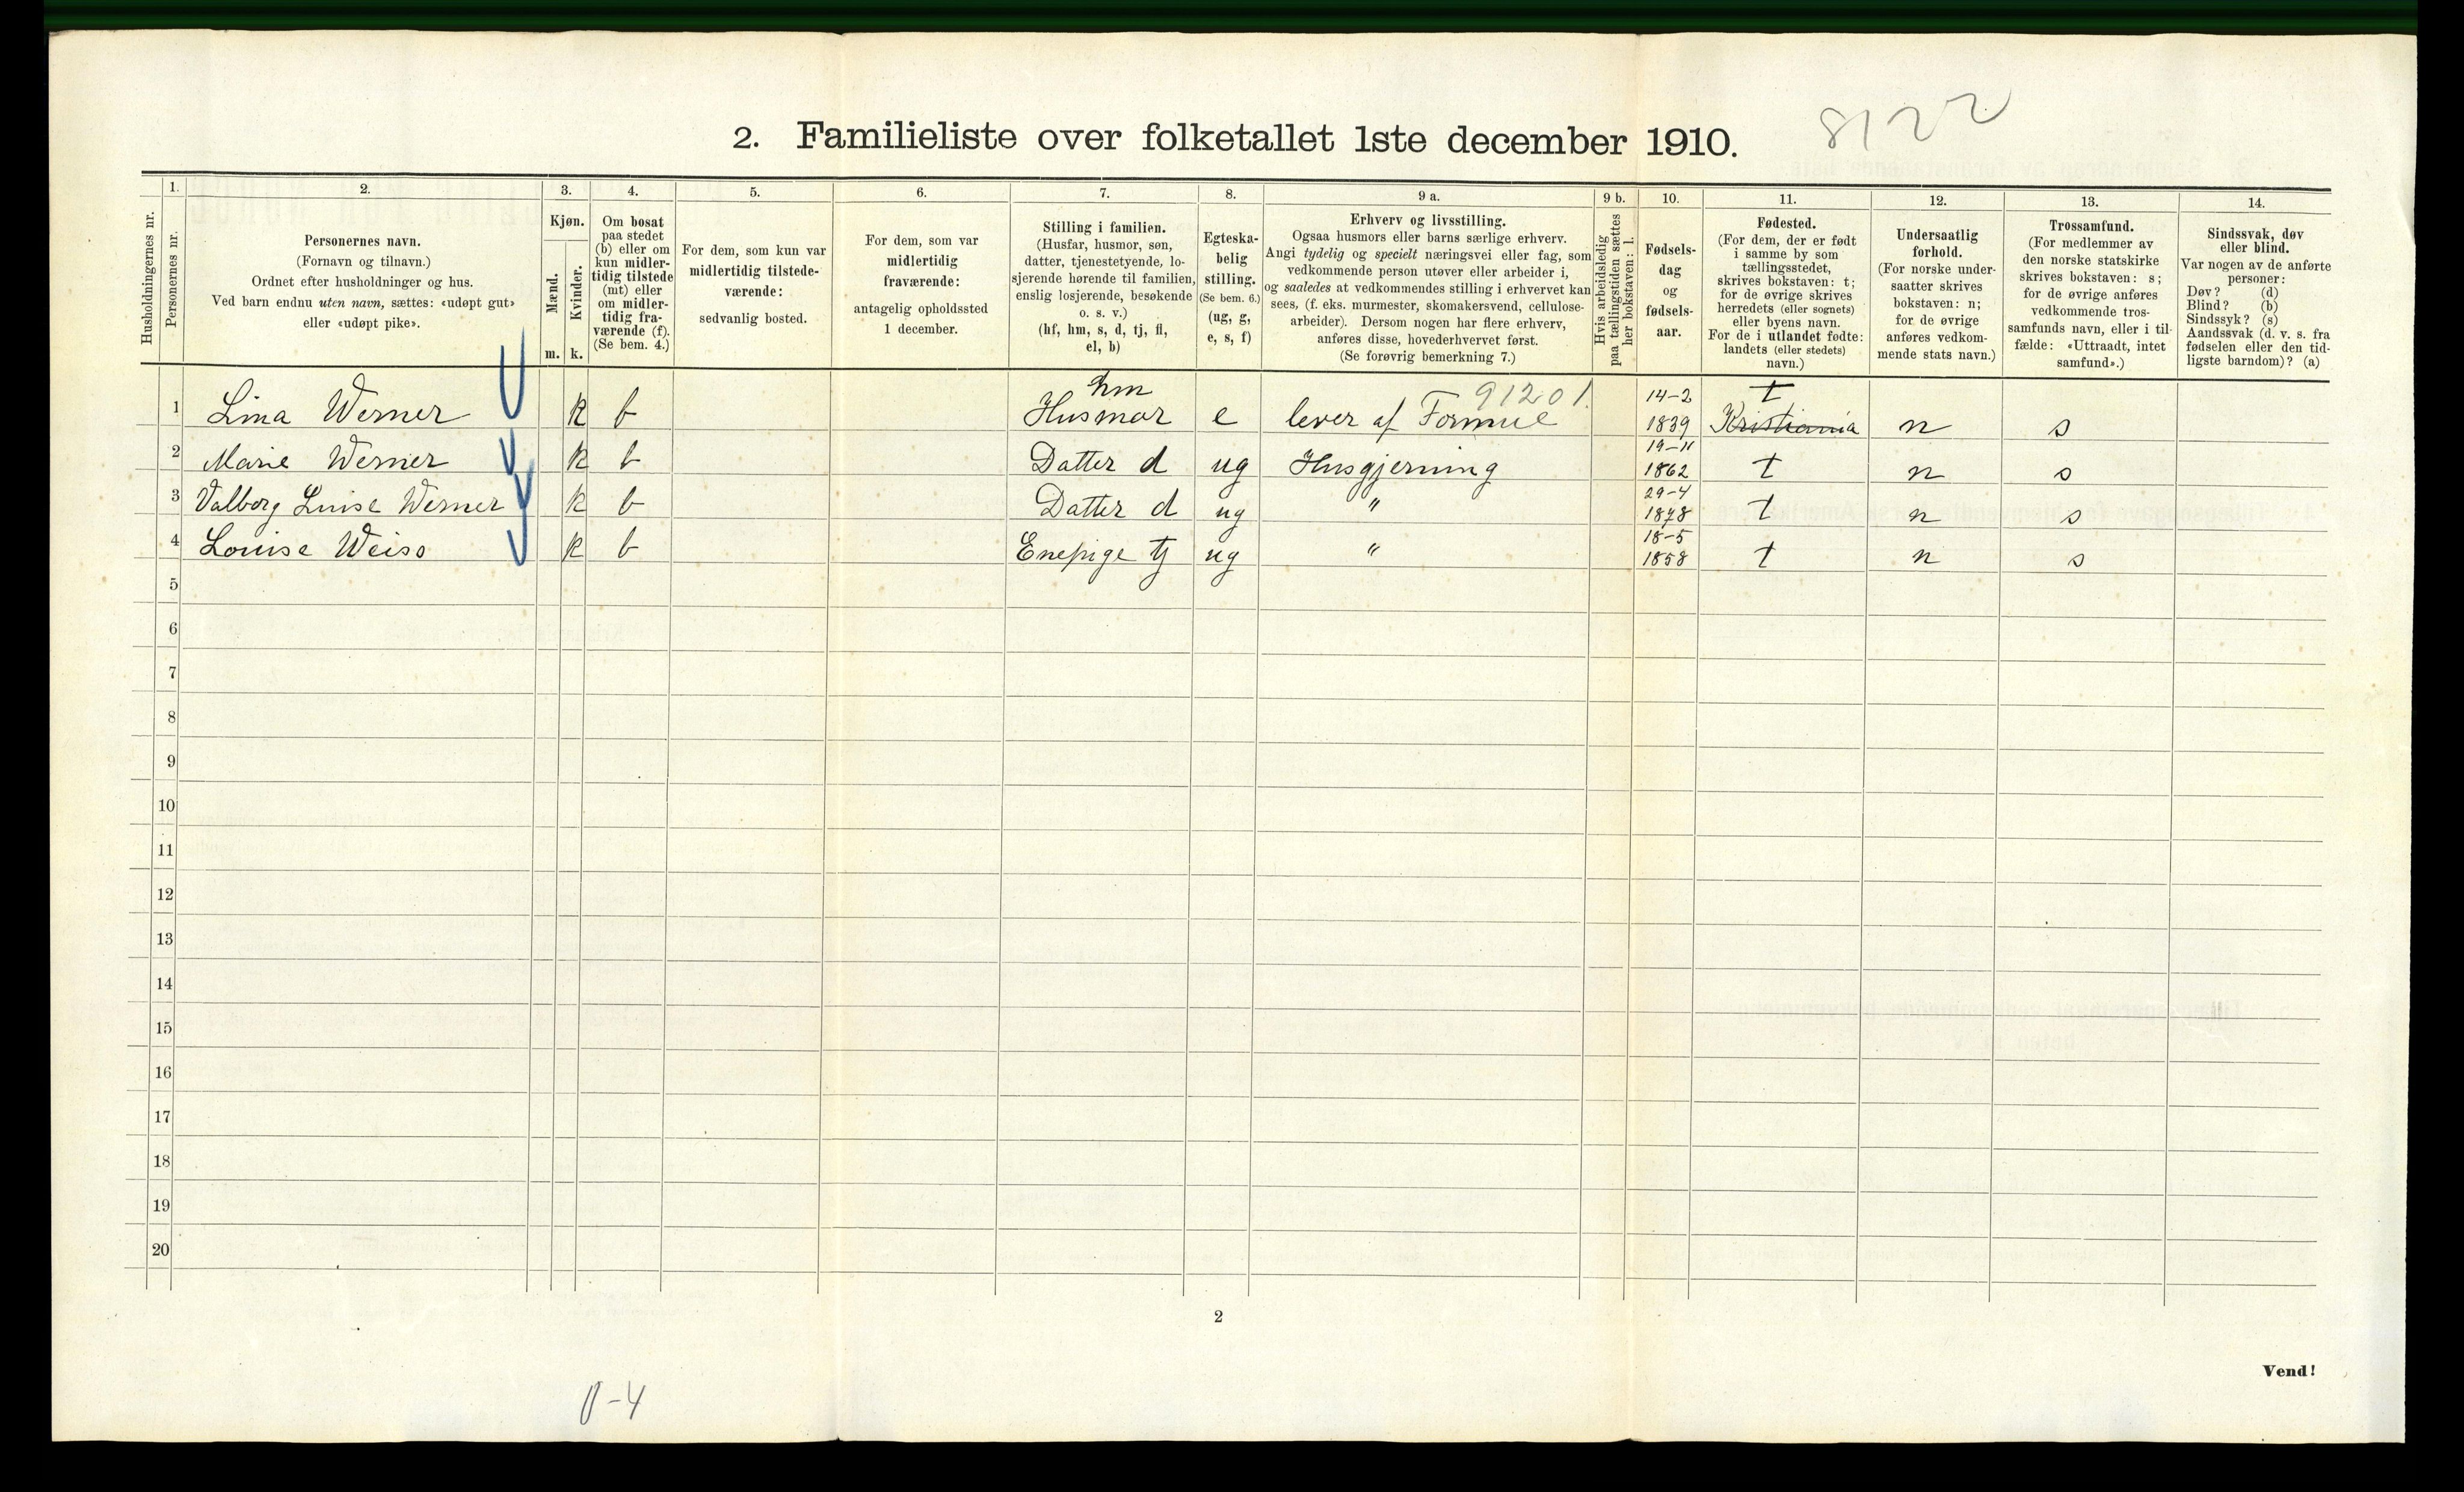 8122
2. Familieliste over folketallet 1ste december 1910.
Husholdningernes nr.
1.
Personernes nr.
2.
Personernes navn.
(Fornavn og tilnavn.)
Ordnet efter husholdninger og hus.
Ved barn endnu uten navn, sættes: «udøpt gut»
eller «udøpt pike».
3.
Kjøn.
Mænd.
Kvinder.
m. k.
4.
Om bosat
paa stedet
(b) eller om
kun midler-
tidig tilstede
(mt) eller
om midler-
tidig fra-
værende (f).
(Se bem. 4.)
5.
For dem, som kun var
midlertidig tilstede-
værende:
sedvanlig bosted.
6.
For dem, som var
midlertidig
fraværende:
antagelig opholdssted
1 december.
7.
Stilling i familien.
(Husfar, husmor, søn,
datter, tjenestetyende, lo-
sjerende hørende til familien,
enslig losjerende, besøkende
o. s. v.)
(hf, hm, s, d, tj, fl,
el, b)
8.
Egteska-
belig
stilling.
(Se bem. 6.)
(ug, g,
e, s, f)
9 a.
Erhverv og livsstilling.
Ogsaa husmors eller barns særlige erhverv.
Angi tydelig og specielt næringsvei eller fag, som
vedkommende person utøver eller arbeider i,
og saaledes at vedkommendes stilling i erhvervet kan
sees, (f. eks. murmester, skomakersvend, cellulose-
arbeider). Dersom nogen har flere erhverv,
anføres disse, hovederhvervet først.
(Se forøvrig bemerkning 7.)
9 b.
Hvis arbeidsledig
paa tællingstiden sættes
her bokstaven: l.
10.
Fødsels-
dag
og
fødsels-
aar.
11.
Fødested.
(For dem, der er født
i samme by som
tællingsstedet,
skrives bokstaven: t;
for de øvrige skrives
herredets (eller sognets)
eller byens navn.
For de i utlandet fødte:
landets (eller stedets)
navn.)
12.
Undersaatlig
forhold.
(For norske under-
saatter skrives
bokstaven: n;
for de øvrige
anføres vedkom-
mende stats navn.)
13.
Trossamfund.
(For medlemmer av
den norske statskirke
skrives bokstaven: s;
for de øvrige anføres
vedkommende tros-
samfunds navn, eller i til-
fælde: «Uttraadt, intet
samfund».)
14.
Sindssvak, døv
eller blind.
Var nogen av de anførte
personer:
Døv? (d)
Blind? (b)
Sindssyk? (s)
Aandssvak (d. v. s. fra
fødselen eller den tid-
ligste barndom)? (a)
hm 91201. 14-2 t
1 Lina Werner k b Husmor e lever af Formue 1839 Kristiania n s
19-11
2 Marie Werner k b Datter d ug Husgjerning 1862 t n s
29-4
3 Valborg Luise Werner k b Datter d ug " 1878 t n s
18-5
4 Louise Weiss k b Enepige tj ug " 1858 t n s
5
6
7
8
9
10
11
12
13
14
15
16
17
18
19
20
2
Vend!
0-4